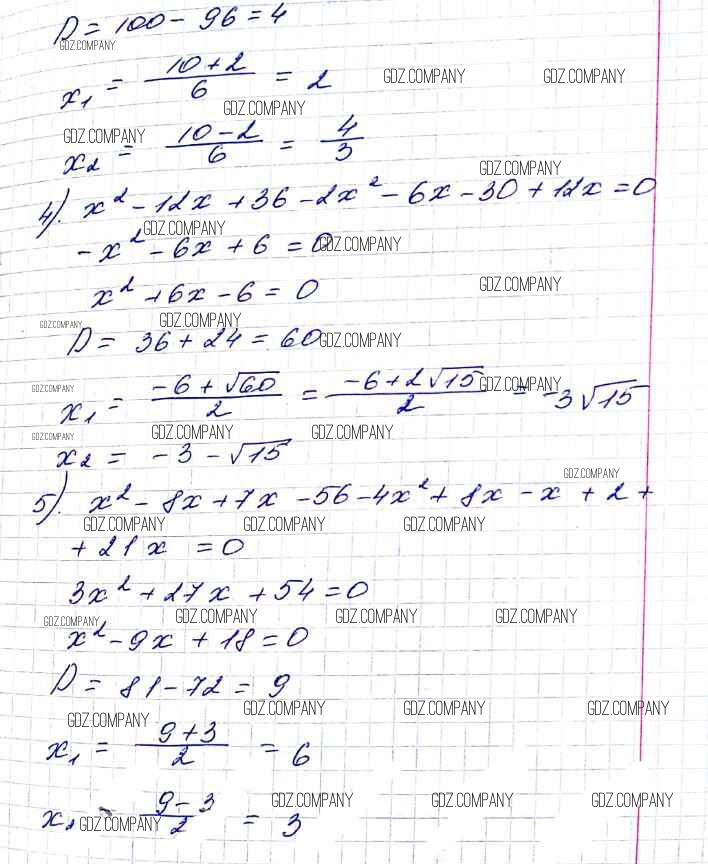 D = 100 - 96 = 4
GDZ.COMPANY
x₁ = (10 + 2)/6 = 2 GDZ.COMPANY GDZ.COMPANY
GDZ.COMPANY
GDZ.COMPANY
x₂ = (10 - 2)/6 = 4/3
GDZ.COMPANY
4). x² - 12x + 36 - 2x² - 6x - 30 + 12x = 0
GDZ.COMPANY
- x² - 6x + 6 = 0 GDZ.COMPANY
x² + 6x - 6 = 0 GDZ.COMPANY
GDZ.COMPANY GDZ.COMPANY
D = 36 + 24 = 60 GDZ.COMPANY
GDZ.COMPANY GDZ.COMPANY
x₁ = (-6 + √60)/2 = (-6 + 2√15)/2 = -3√15
GDZ.COMPANY GDZ.COMPANY GDZ.COMPANY
x₂ = -3 - √15
GDZ.COMPANY
5). x² - 8x + 7x - 56 - 4x² + 8x - x + 2 +
GDZ.COMPANY GDZ.COMPANY GDZ.COMPANY
+ 21x = 0
3x² + 27x + 54 = 0
GDZ.COMPANY GDZ.COMPANY GDZ.COMPANY GDZ.COMPANY
x² - 9x + 18 = 0
D = 81 - 72 = 9
GDZ.COMPANY GDZ.COMPANY GDZ.COMPANY GDZ.COMPANY
x₁ = (9 + 3)/2 = 6
GDZ.COMPANY GDZ.COMPANY GDZ.COMPANY
x₂ = (9 - 3)/2 = 3
GDZ.COMPANY